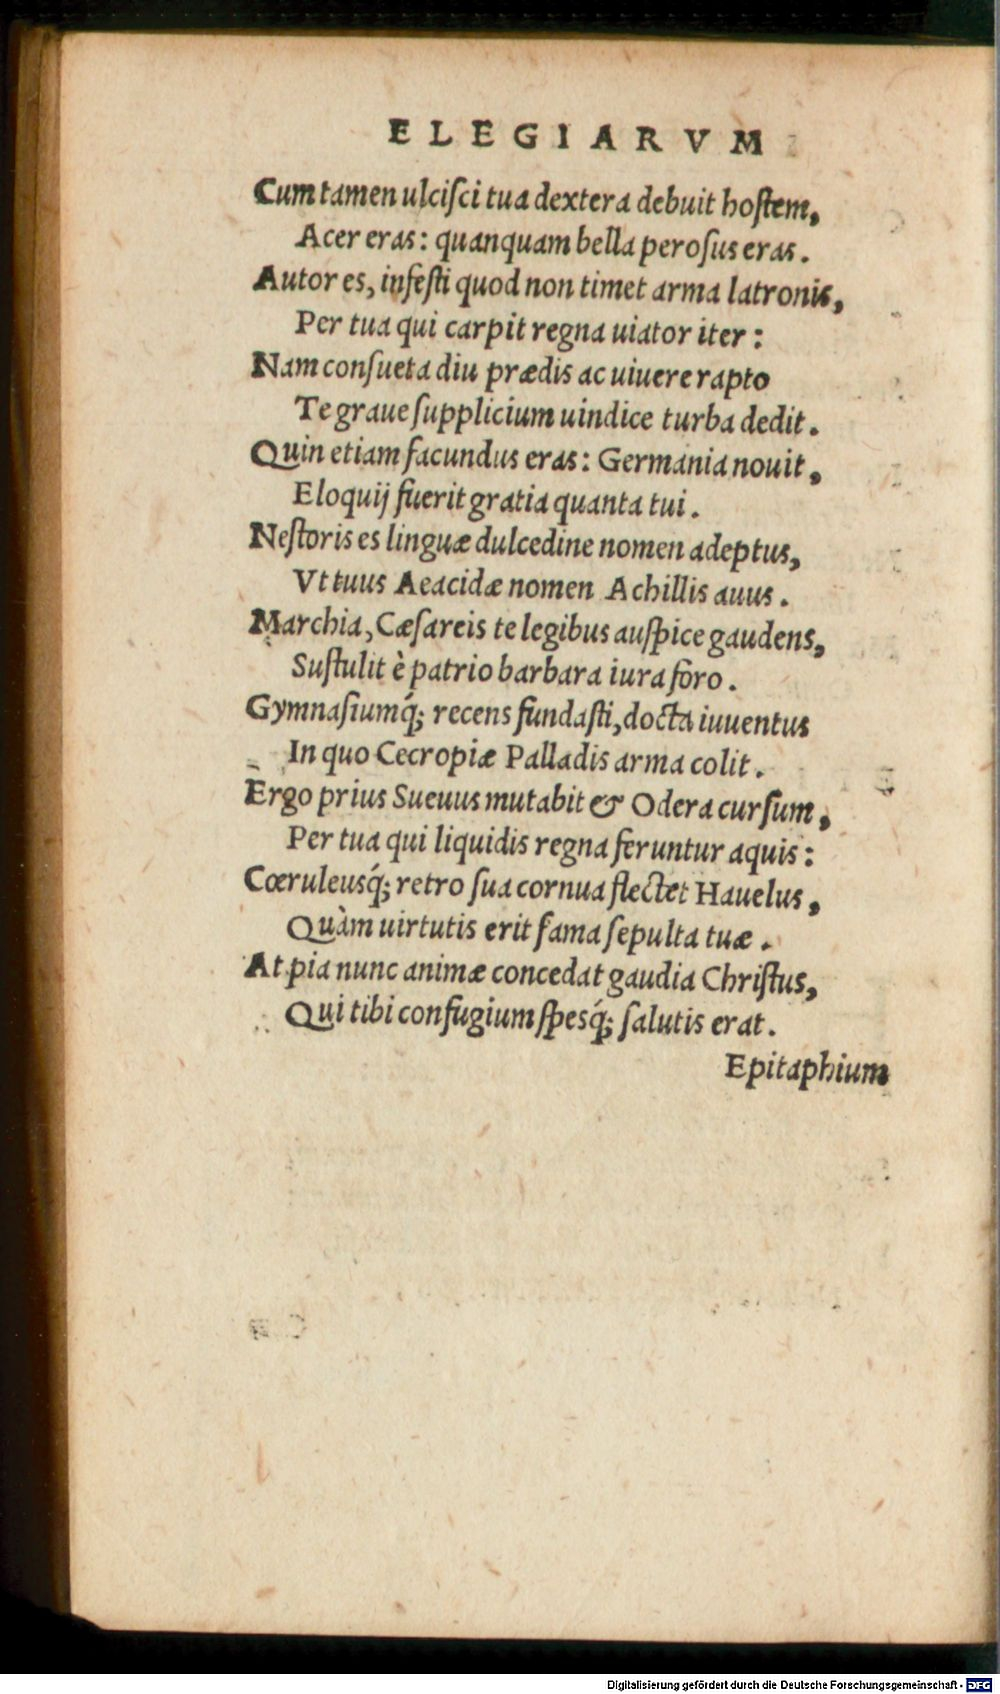 ELEGIARVM
Cum tamen ulciſci tua dextera debuit hoſtem,
Acer eras: quanquam bella peroſus eras.
Autor es, infeſti quod non timet arma latronis,
Per tua qui carpit regna uiator iter:
Nam conſueta diu prædis ac uiuere rapto
Te graue ſupplicium uindice turba dedit.
Quin etiam facundus eras: Germania nouit,
Eloquij fuerit gratia quanta tui.
Neſtoris es linguæ dulcedine nomen adeptus,
Vt tuus Aeacidæ nomen Achillis auus.
Marchia, Cæſareis te legibus auſpice gaudens,
Suſtulit è patrio barbara iura foro.
Gymnaſiumq́; recens fundaſti, docta iuuentus
In quo Cecropiæ Palladis arma colit.
Ergo prius Sueuus mutabit & Odera curſum,
Per tua qui liquidis regna feruntur aquis:
Cœruleusq́; retro ſua cornua flectet Hauelus,
Quàm uirtutis erit fama ſepulta tuæ.
At pia nunc animæ concedat gaudia Chriſtus,
Qui tibi confugium ſpesq́; ſalutis erat.
Epitaphium
Digitalisierung gefördert durch die Deutsche Forschungsgemeinschaft - DFG